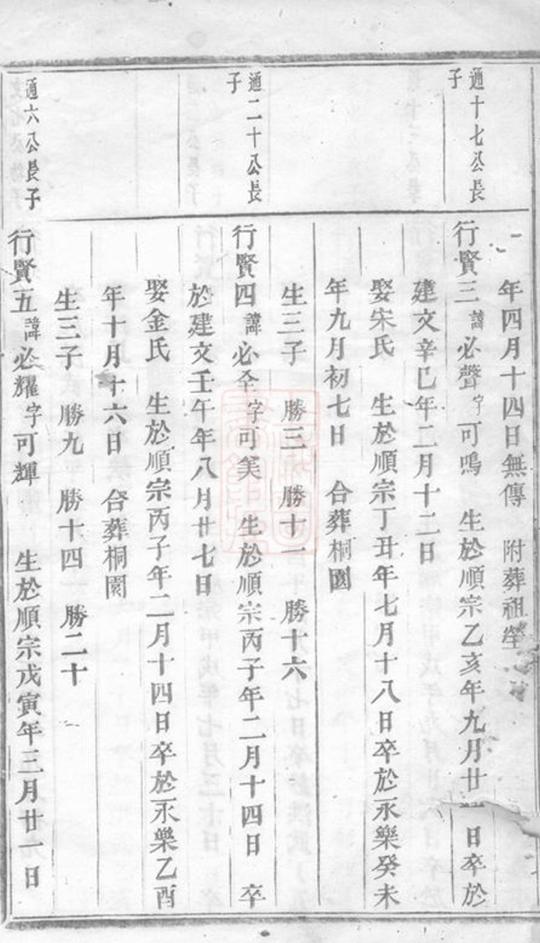 年四月十四日無傳 附葬祖塋
通十七公長子
行賢三諱必聲字可鳴 生於順宗乙亥年九月廿一日卒於
建文辛巳年二月十二日
娶宋氏 生於順宗丁丑年七月十八日卒於永樂癸未
年九月初七日 合葬桐園
生三子 勝三 勝十一 勝十六
通二十公長子
行賢四諱必全字可美 生於順宗丙子年二月十四日 卒
於建文壬午年八月廿七日
娶金氏 生於順宗丙子年二月十四日卒於永樂乙酉
年十月十六日 合葬桐園
生三子 勝九 勝十四 勝二十
通六公長子
行賢五諱必耀字可輝 生於順宗戊寅年三月廿一日